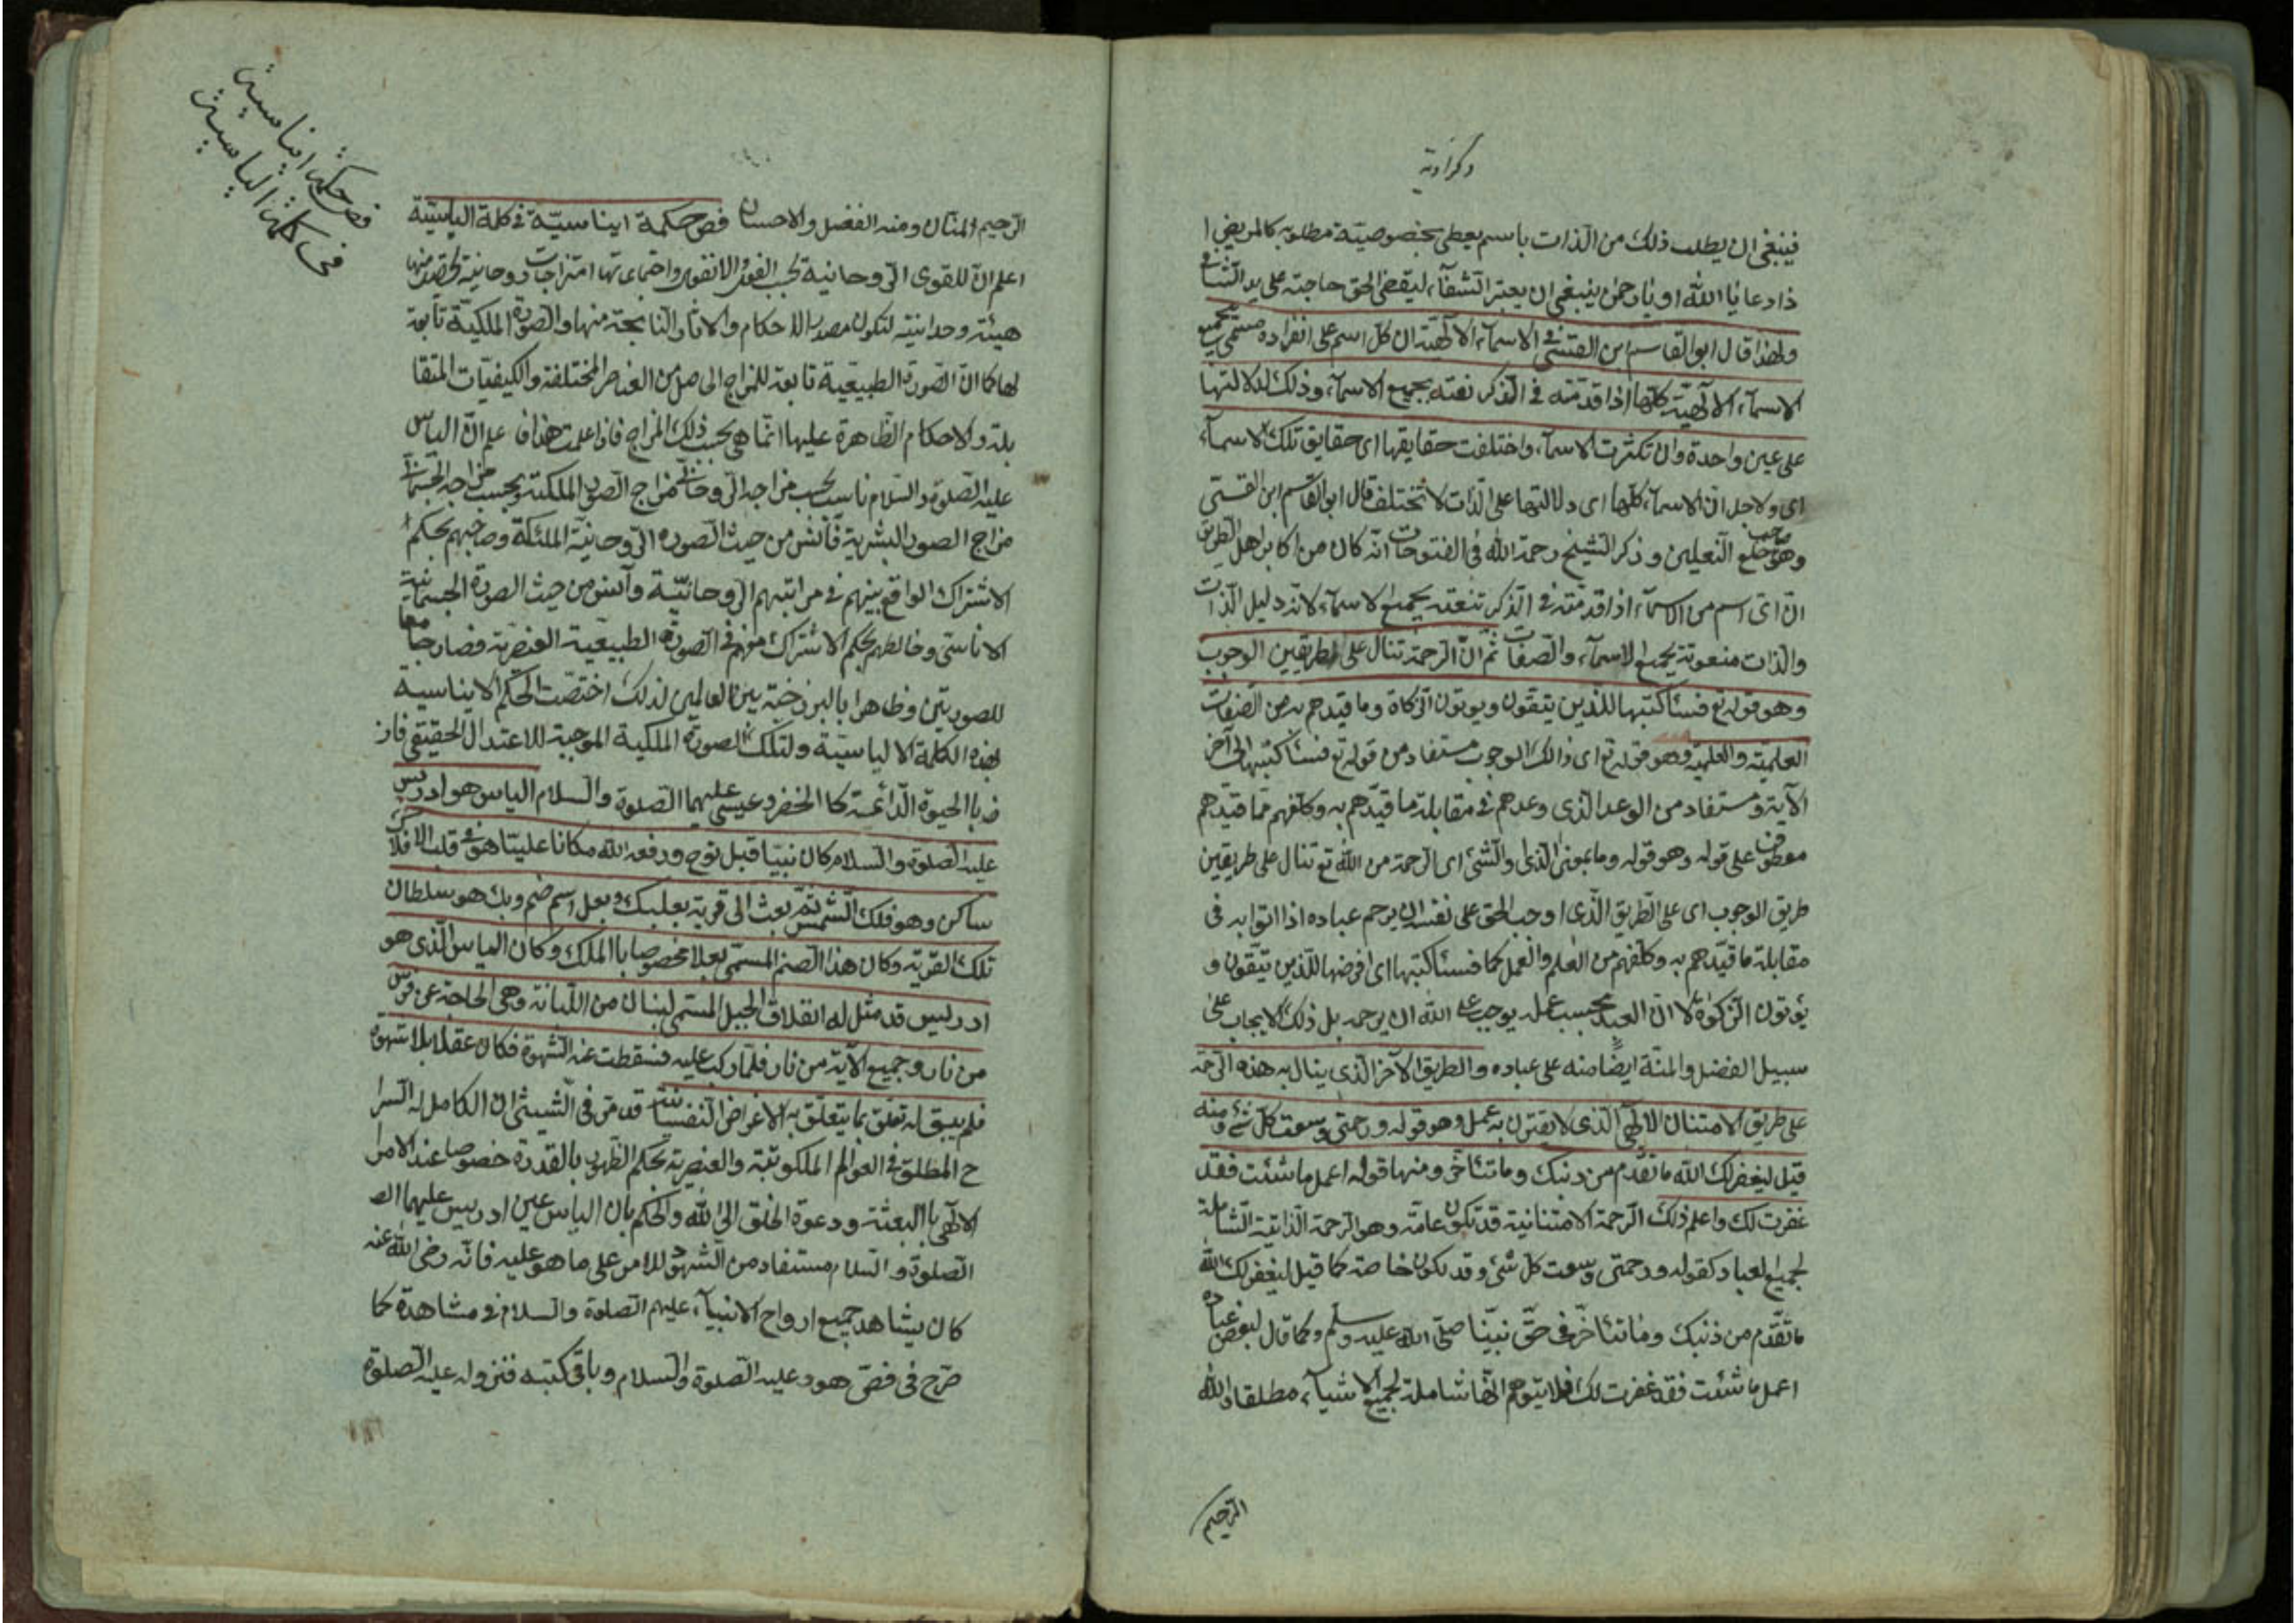 ذكراوية
فينبغي ان يطلب ذلك من الذات باسم يعطى بخصوصيته مطلوبه كالمريض ا
ذا دعا يا الله او يا رحمن ينبغي ان يعتبر الشفآء ليقضى الحق حاجته على يد الشافى
ولهذا قال ابو القاسم ابن القسى فى الاسمآء الالهية ان كل اسم على انفراده مسمى بجميع
الاسمآء الالهية كلها اذا قدمته فى الذكر نعته بجميع الاسمآء وذلك لدلالتها
على عين واحدة وان تكثرت الاسمآء واختلفت حقايقها اى حقايق تلك الاسمآء
اى ولاجل ان الاسمآء كلها اى دلالتها على الذات لا تختلف قال ابو القاسم ابن القسى
وهو صاحب خلع النعلين وذكر الشيخ رحمة الله فى الفتوحات انه كان من اكابر اهل الطريق
ان اى اسم من الاسمآء اذا قدمته فى الذكر تنعته بجميع الاسمآء لانه دليل الذات
والذات منعوتة بجميع الاسمآء والصفات ثم ان الرحمة تنال على طريقين الوجوب
وهو قوله تع فسأكتبها للذين يتقون ويوتون الزكاة وما قيدهم به من الصفات
العلمية والعملية وهو قوله تع اى ذالك الوجوب مستفاد من قوله تع فسأكتبها الى آخر
الآية ومستفاد من الوعد الذى وعدهم فى مقابلة ما قيدهم به وكلفهم مما قيدهم
معطوف على قوله وهو قوله وما بمعنى الذى والشئ اى الرحمة من الله تع تنال على طريقين
طريق الوجوب اى على الطريق الذى اوجب الحق على نفسه ان يرحم عباده اذا اتوا به فى
مقابلة ما قيدهم به وكلفهم من العلم والعمل كما فسأكتبها اى افرضها للذين يتقون و
يؤتون الزكوة لا ان العبد بحسب عمله يوجب على الله ان يرحمه بل ذلك الايجاب على
سبيل الفضل والمنة ايضا منه على عباده والطريق الآخر الذى ينال به هذه الرحمة
على طريق الامتنان الالهى الذى لا يقترن به عمل وهو قوله ورحمتى وسعت كل شئ ومنه
قيل ليغفر لك الله ما تقدم من ذنبك وما تأخر ومنها قوله اعمل ما شئت فقد
غفرت لك واعلم ذلك الرحمة الامتنانية قد تكون عامة وهو الرحمة الذاتية الشاملة
لجميع العباد كقوله ورحمتى وسعت كل شئ وقد يكون خاصة كما قيل ليغفر لك الله
ما تقدم من ذنبك وما تأخر فى حق نبينا صلى الله عليه وسلم وكما قال لبعض عباده
اعمل ما شئت فقد غفرت لك فلا يتوهم انها شاملة لجميع الاشيآء مطلقا والله
الرحيم
فص حكمة ايناسية
فى كلمة الياسية
الرحيم المنان ومنه الفضل والاحسان فص حكمة ايناسية فى كلمة الياسية
اعلم ان للقوى الروحانية بحسب واجتماعاتها امتزاجات روحانية تحصل منها
هيئة وحدانية لتكون مصدر للاحكام والاثار الناتجة منها والصورة الملكية تابعة
لها كما ان الصورة الطبيعية تابعة للمزاج الحاصل من العناصر المختلفة والكيفيات المتقا
بلة والاحكام الظاهرة عليها انما هى بحسب ذلك المزاج فاذا علمت هذا فاعلم ان الياس
عليه الصلوة والسلام ناسب بحسب مزاجه الروحانى مزاج الصور الملكية وبحسب مزاجه الجسمانى
مزاج الصور البشرية فأنس من حيث الصورة الروحانية الملئكة وصاحبهم بحكم
الاشتراك الواقع بينهم فى مراتبهم الروحانية وآنس من حيث الصورة الجسمانية
الاناسى وخالطهم بحكم الاشتراك معهم فى الصورة الطبيعية العنصرية فصار جامعا
للصورتين وظاهرا بالبرزخية بين العالمين لذلك اختصت الحكم الايناسية
بهذه الكلمة الالياسية ولتلك الصورة الملكية الموجبة للاعتدال الحقيقى فاز
فى باالحيوة الدائمة كا الخضر وعيسى عليهما الصلوة والسلام الياس هو ادريس
عليه الصلوة والسلام كان نبيا قبل نوح ورفعه الله مكانا عليا هو فى قلب الافلاك
ساكن وهو فلك الشمس ثم بعث الى قرية بعلبك وبعل اسم صنم وبك هو سلطان
تلك القرية وكان هذا الصنم المسمى بعلا مخصوصا باالملك وكان الياس الذى هو
ادريس قد مثل له انفلاق الجبل المسمى لبنان من اللبانة وهى الحاجة عن فرس
من نار وجميع الآته من نار فلما ركب عليه فسقطت عنه الشهوة فكان عقلا بلا شهوة
فلم يبق له تعلق بما يتعلق به الاغراض النفسانية قد مر فى الشيثى ان الكامل له السرا
ح المطلق فى العوالم الملكوتية والعنصرية بحكم الظهور بالقدرة خصوصا عند الامر ا
لالهى باالبعثة ودعوة الخلق الى الله والحكم بان الياس عين ادريس عليهما الصـ
الصلوة والسلام مستفاد من الشهود للامر على ما هو عليه فانه رضى الله عنه
كان يشاهد جميع ارواح الانبيآء عليهم الصلوة والسلام فى مشاهدة كما
صرح فى فص هود عليه الصلوة والسلام وباقى كتبه فنزوله عليه الصلوة